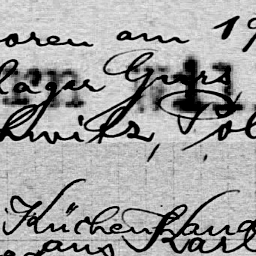 oren am 19
lager Gurs
hwitz, Pol
Küchenhand
aus Karl